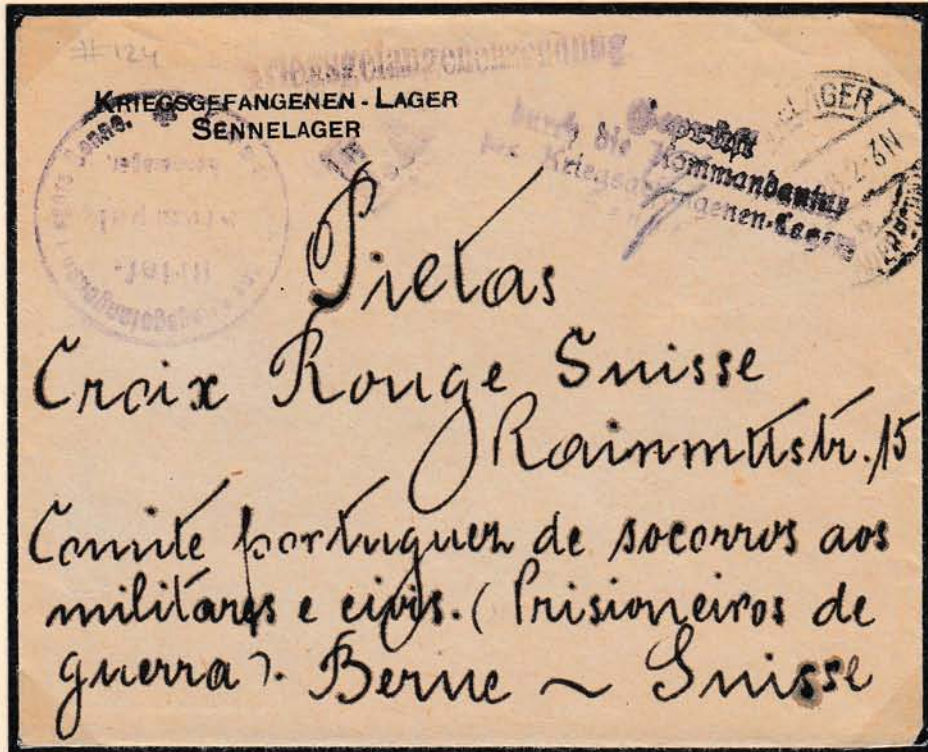 # 124
KRIEGSGEFANGENEN-LAGER
SENNELAGER
Geprüft
durch die Kommandantur
des Kriegsgefangenen-Lagers
LAGER
2-3N
Pietas
Croix Rouge Suisse
Rainmttstr. 15
Comité portuguez de socorros aos
militares e civis. (Prisioneiros de
guerra). Berne ~ Suisse